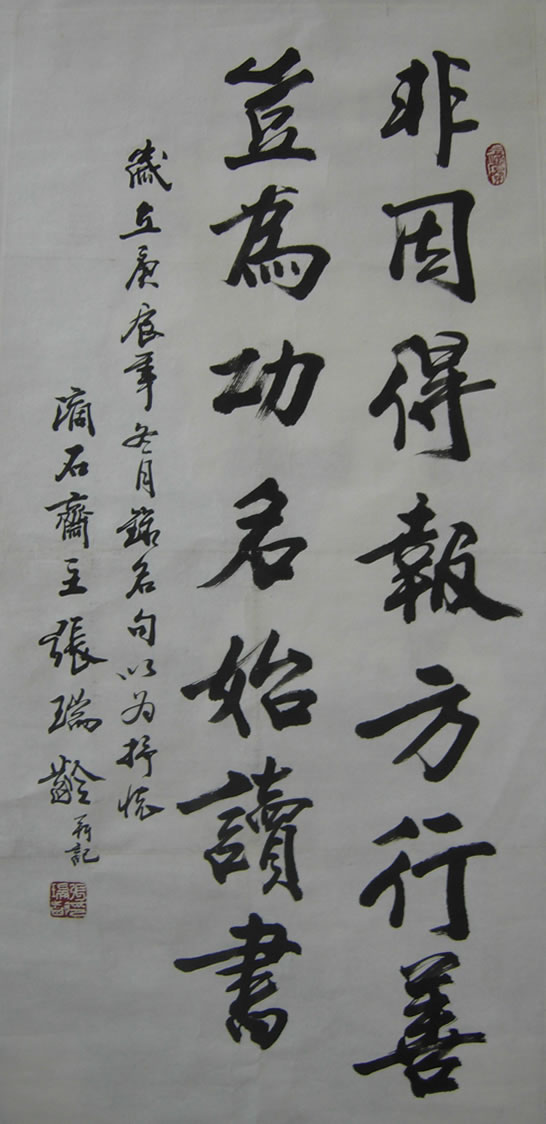 非因得報方行善
豈為功名始讀書
歲立庚辰年冬月錄名句以為抒懷
滴石齋主張瑞齡并記